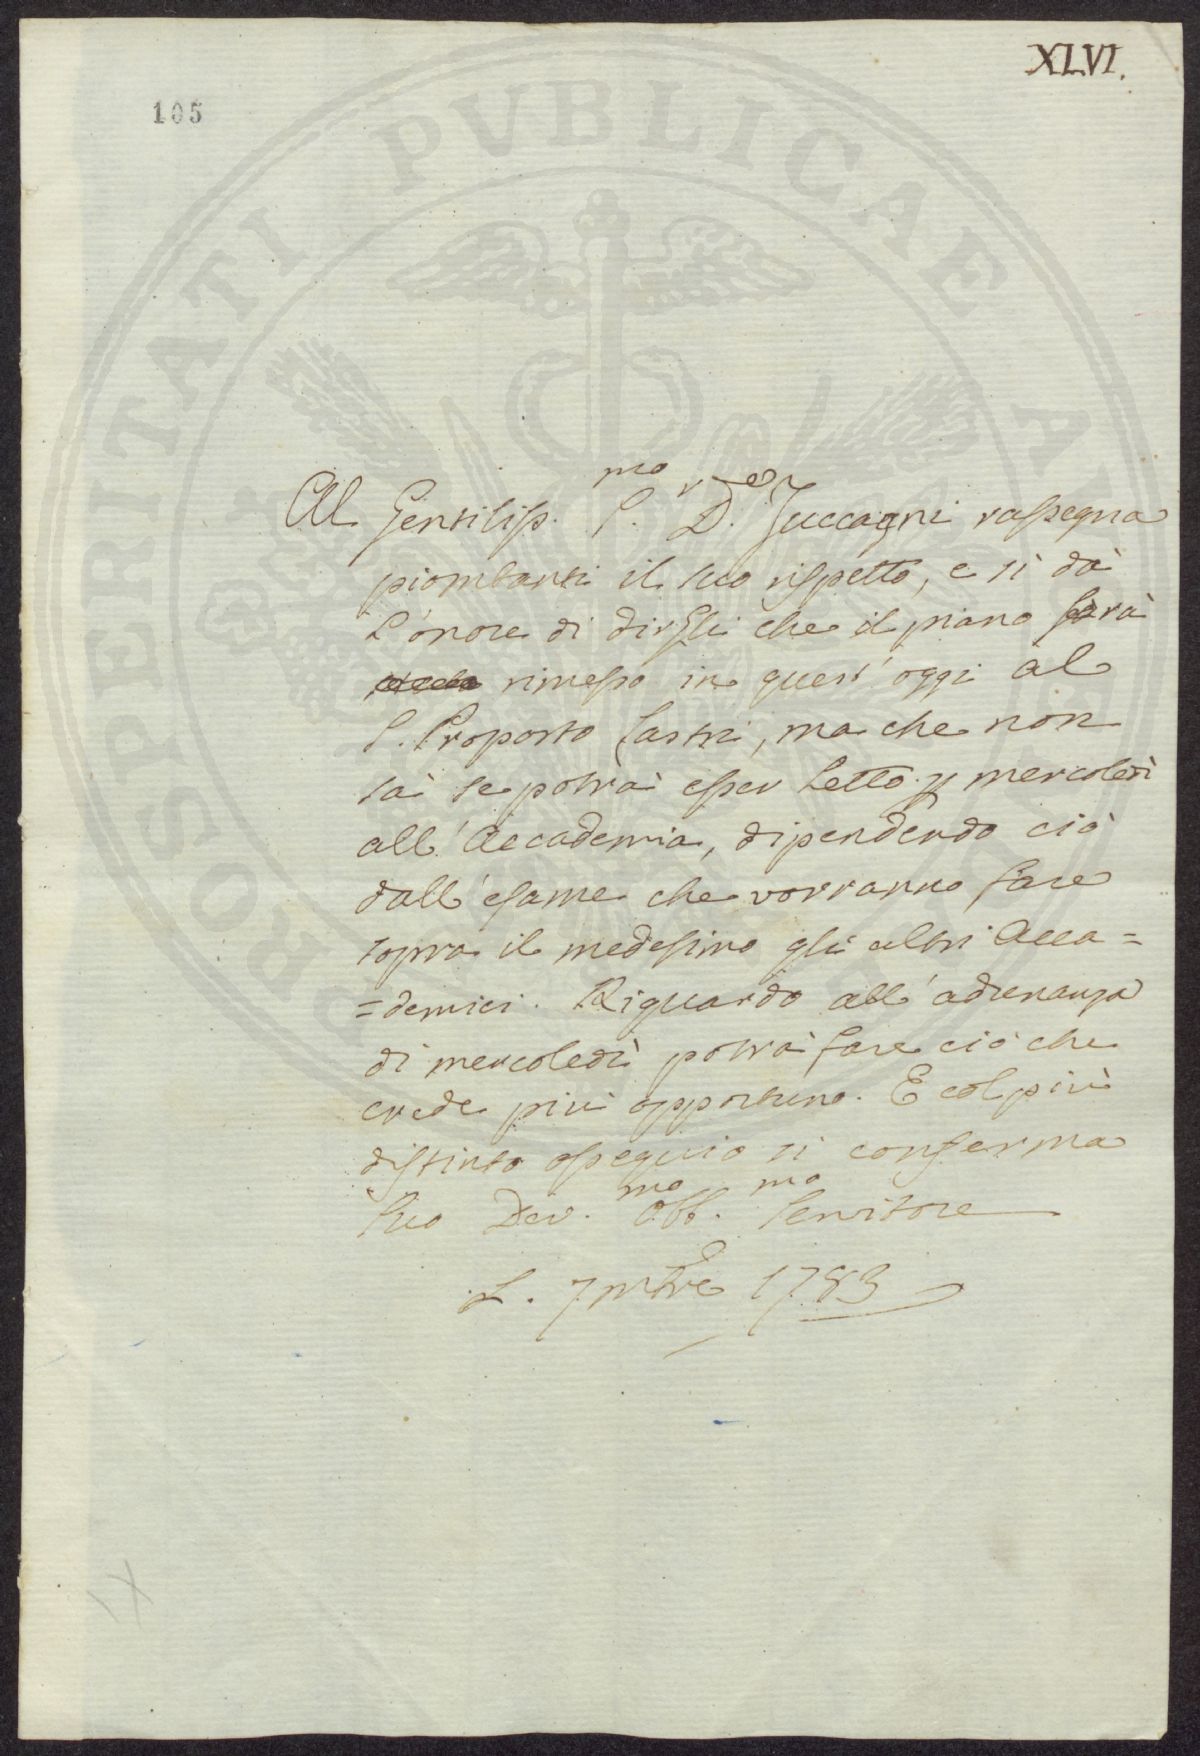 XLVI.
105
PROSPERITATI PUBLICAE AUGENDAE
Al Gentiliss.mo S.r D.re Zuccagni rassegna
piombanti il suo rispetto, e si dà
l'onore di dirgli che il piano sarà
rimesso in quest'oggi al
S. Proposto Lastri, ma che non
sà se potrà esser letto p mercoledì
all'Accademia, dipendendo ciò
dall'esame che vorranno fare
sopra il medesimo gli altri Acca=
=demici. Riguardo all'adunanza
di mercoledì potrà fare ciò che
crede più opportuno. E col più
distinto ossequio si conferma
Suo Dev.mo Obb.mo Servitore
L. 7mbre 1783